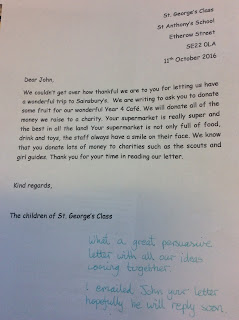 St. George's Class
St Anthony's School
Etherow Street
SE22 0LA
11th October 2016
Dear John,
We couldn't get over how thankful we are to you for letting us have
a wonderful trip to Sainsbury's. We are writing to ask you to donate
some fruit for our wonderful Year 4 Café. We will donate all of the
money we raise to a charity. Your supermarket is really super and
the best in all the land Your supermarket is not only full of food,
drink and toys, the staff always have a smile on their face. We know
that you donate lots of money to charities such as the scouts and
girl guides. Thank you for your time in reading our letter.
Kind regards,
The children of St. George's Class
What a great persuasive
letter with all our ideas
coming together.
I emailed John your letter
hopefully he will reply soon.